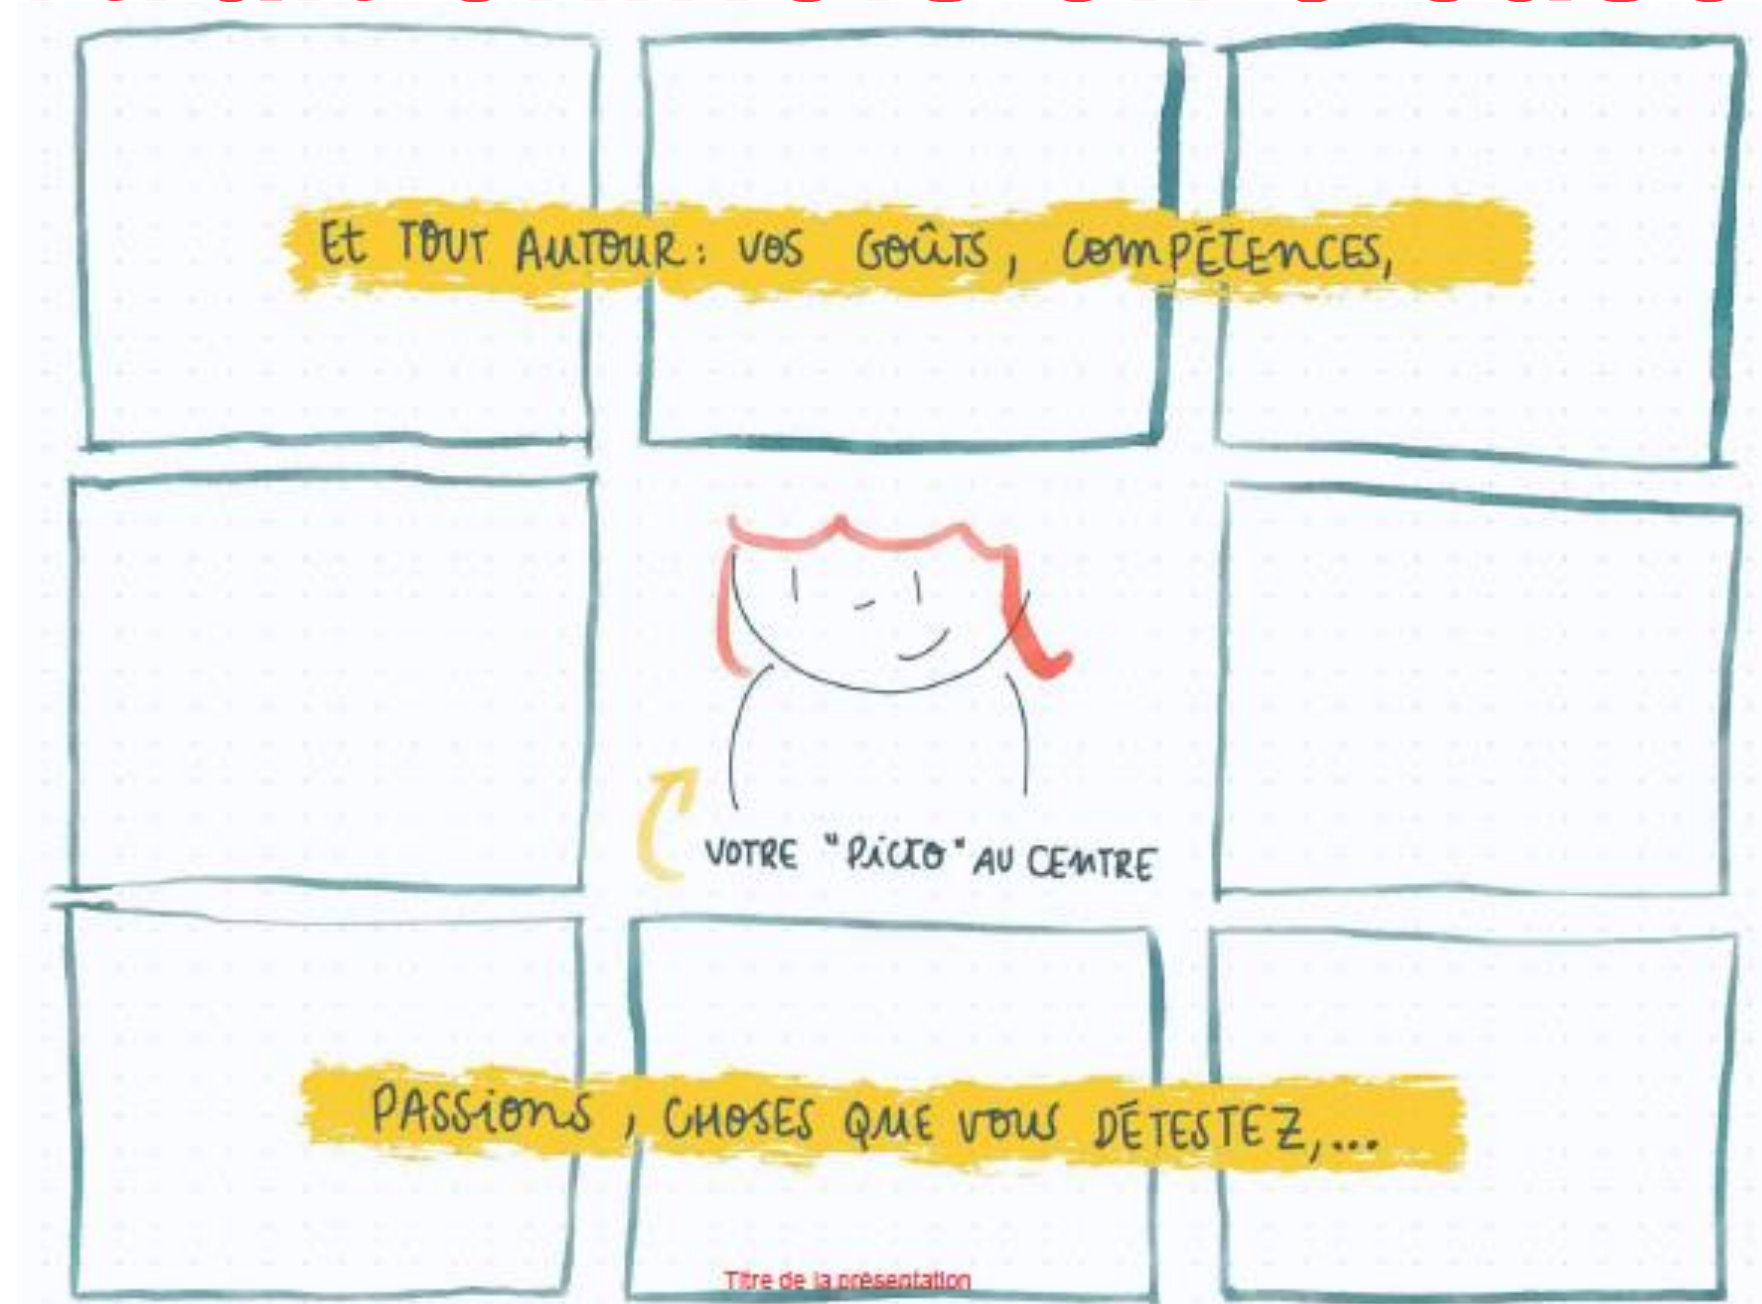 Et TOUT AUTOUR : VOS GOÛTS, COMPÉTENCES,
VOTRE "PICTO" AU CENTRE
PASSIONS, CHOSES QUE VOUS DÉTESTEZ,...
Titre de la présentation